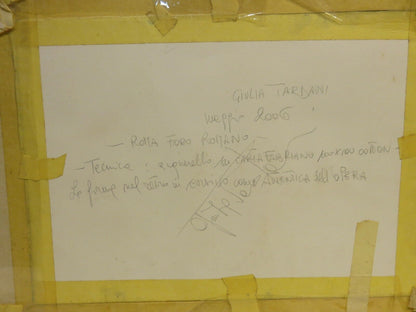 GIULIA TARDANI
Maggio 2006
- ROMA FORO ROMANO -
- Tecnica : acquarello su CARTA FABRIANO COTON -
La firma nel retro si come AUTENTICA dell'OPERA